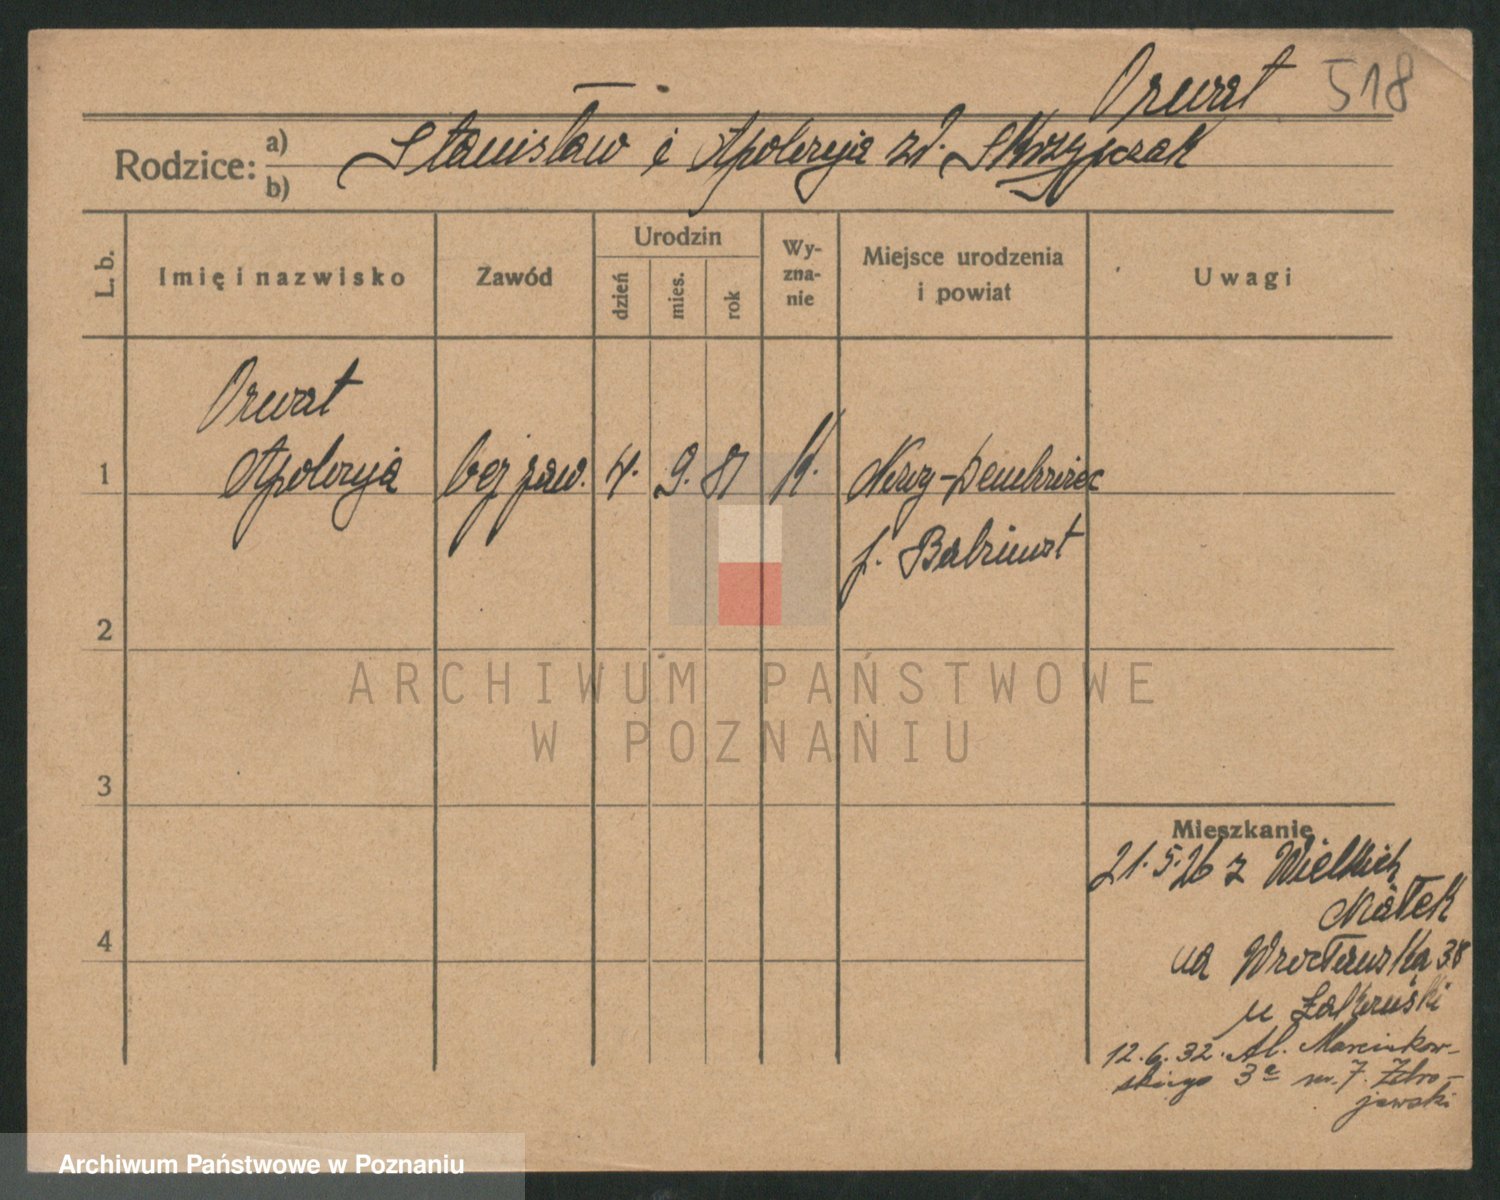 Orwat 518
Rodzice: a) b)
Stanisław i Apolonja zd. Skrzypczak
L. b.
Imię i nazwisko
Zawód
Urodzin
dzień
mies.
rok
Wy-
zna-
nie
Miejsce urodzenia
i powiat
Uwagi
Orwat
1 Apolonja bez zaw. 4. 9. 81 k.
p. Babimost
2
3
4
ARCHIWUM PAŃSTWOWE
W POZNANIU
Mieszkanie
21.5.26 z Wielkich
na Wrocławska 38
u
12.6.32. Al. Marcinkow-
skiego 3a m. 7.
Archiwum Państwowe w Poznaniu